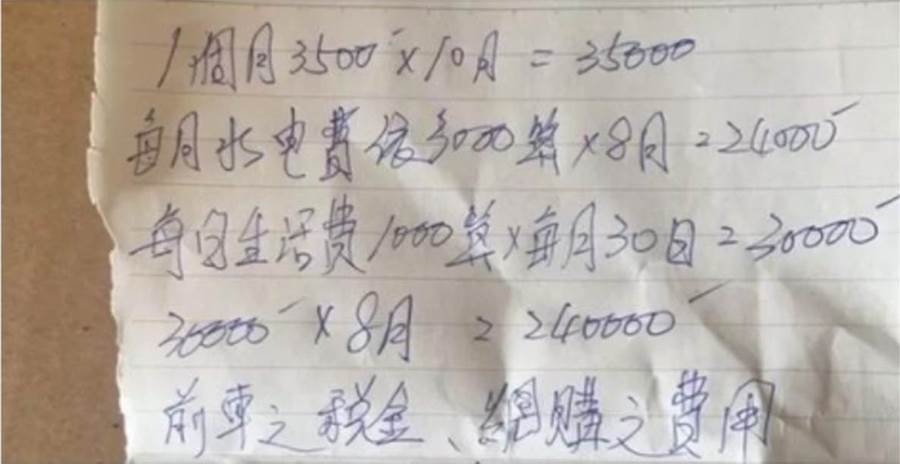 1個月3500×10月=35000
每月水电費依3000算×8月=24000
每日生活費1000算×每月30日=30000
30000×8月=240000
前車之税金、網購之費用